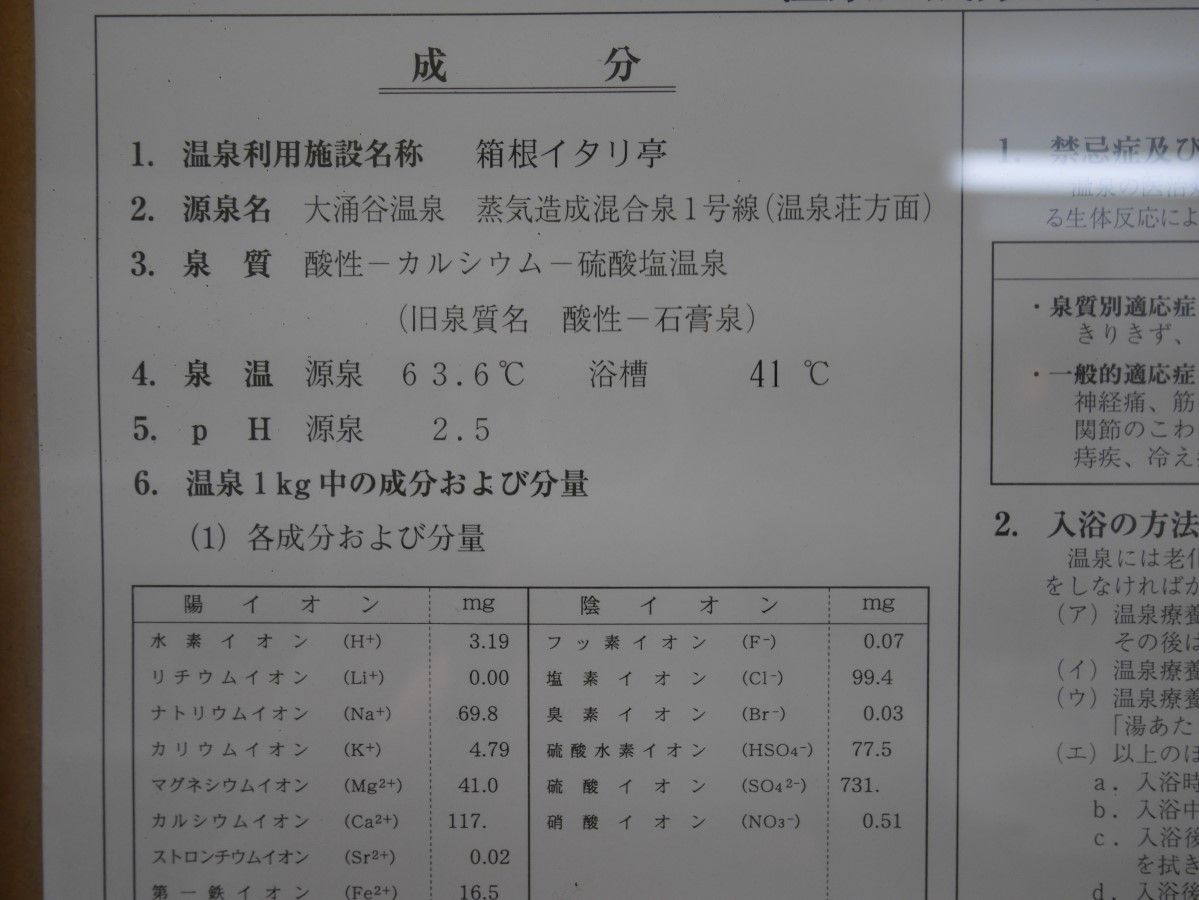 成　分
1. 温泉利用施設名称　箱根イタリ亭
2. 源泉名　大涌谷温泉　蒸気造成混合泉1号線(温泉荘方面)
3. 泉質　酸性－カルシウム－硫酸塩温泉
(旧泉質名　酸性－石膏泉)
4. 泉温　源泉　63.6℃　浴槽　41℃
5. pH　源泉　2.5
6. 温泉1kg中の成分および分量
(1) 各成分および分量
陽イオン　mg　陰イオン　mg
水素イオン (H+) 3.19　フッ素イオン (F-) 0.07
リチウムイオン (Li+) 0.00　塩素イオン (Cl-) 99.4
ナトリウムイオン (Na+) 69.8　臭素イオン (Br-) 0.03
カリウムイオン (K+) 4.79　硫酸水素イオン (HSO4-) 77.5
マグネシウムイオン (Mg2+) 41.0　硫酸イオン (SO4 2-) 731.
カルシウムイオン (Ca2+) 117.　硝酸イオン (NO3-) 0.51
ストロンチウムイオン (Sr2+) 0.02
第一鉄イオン (Fe2+) 16.5
1. 禁忌症及び
温泉の医治
る生体反応によ
・泉質別適応症
きりきず、
・一般的適応症
神経痛、筋
関節のこわ
痔疾、冷え
2. 入浴の方法
温泉には老化
をしなければか
(ア) 温泉療養
その後は
(イ) 温泉療養
(ウ) 温泉療養
「湯あた
(エ) 以上のほ
a. 入浴時
b. 入浴中
c. 入浴後
を拭き
d. 入浴後